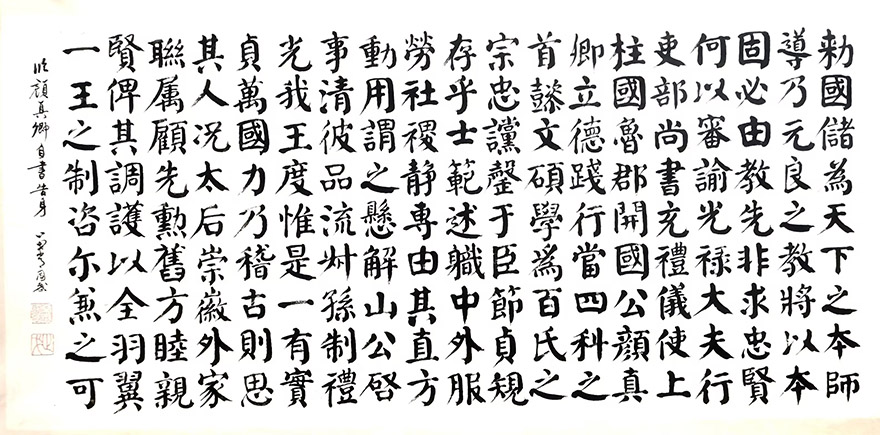 勅國儲為天下之本師
導乃元良之教將以本
固必由教先非求忠賢
何以審諭光禄大夫行
吏部尚書充禮儀使上
柱國魯郡開國公顔真
卿立德踐行當四科之
首懿文碩學為百氏之
宗忠讜罄于臣節貞規
存乎士範述職中外服
勞社稷静專由其直方
動用謂之懸解山公啓
事清彼品流叔孫制禮
光我王度惟是一有實
貞萬國力乃稽古則思
其人况太后崇徽外家
聯属顧先勲舊方睦親
賢俾其調護以全羽翼
一王之制咨尔兼之可
臨顔真卿自書告身